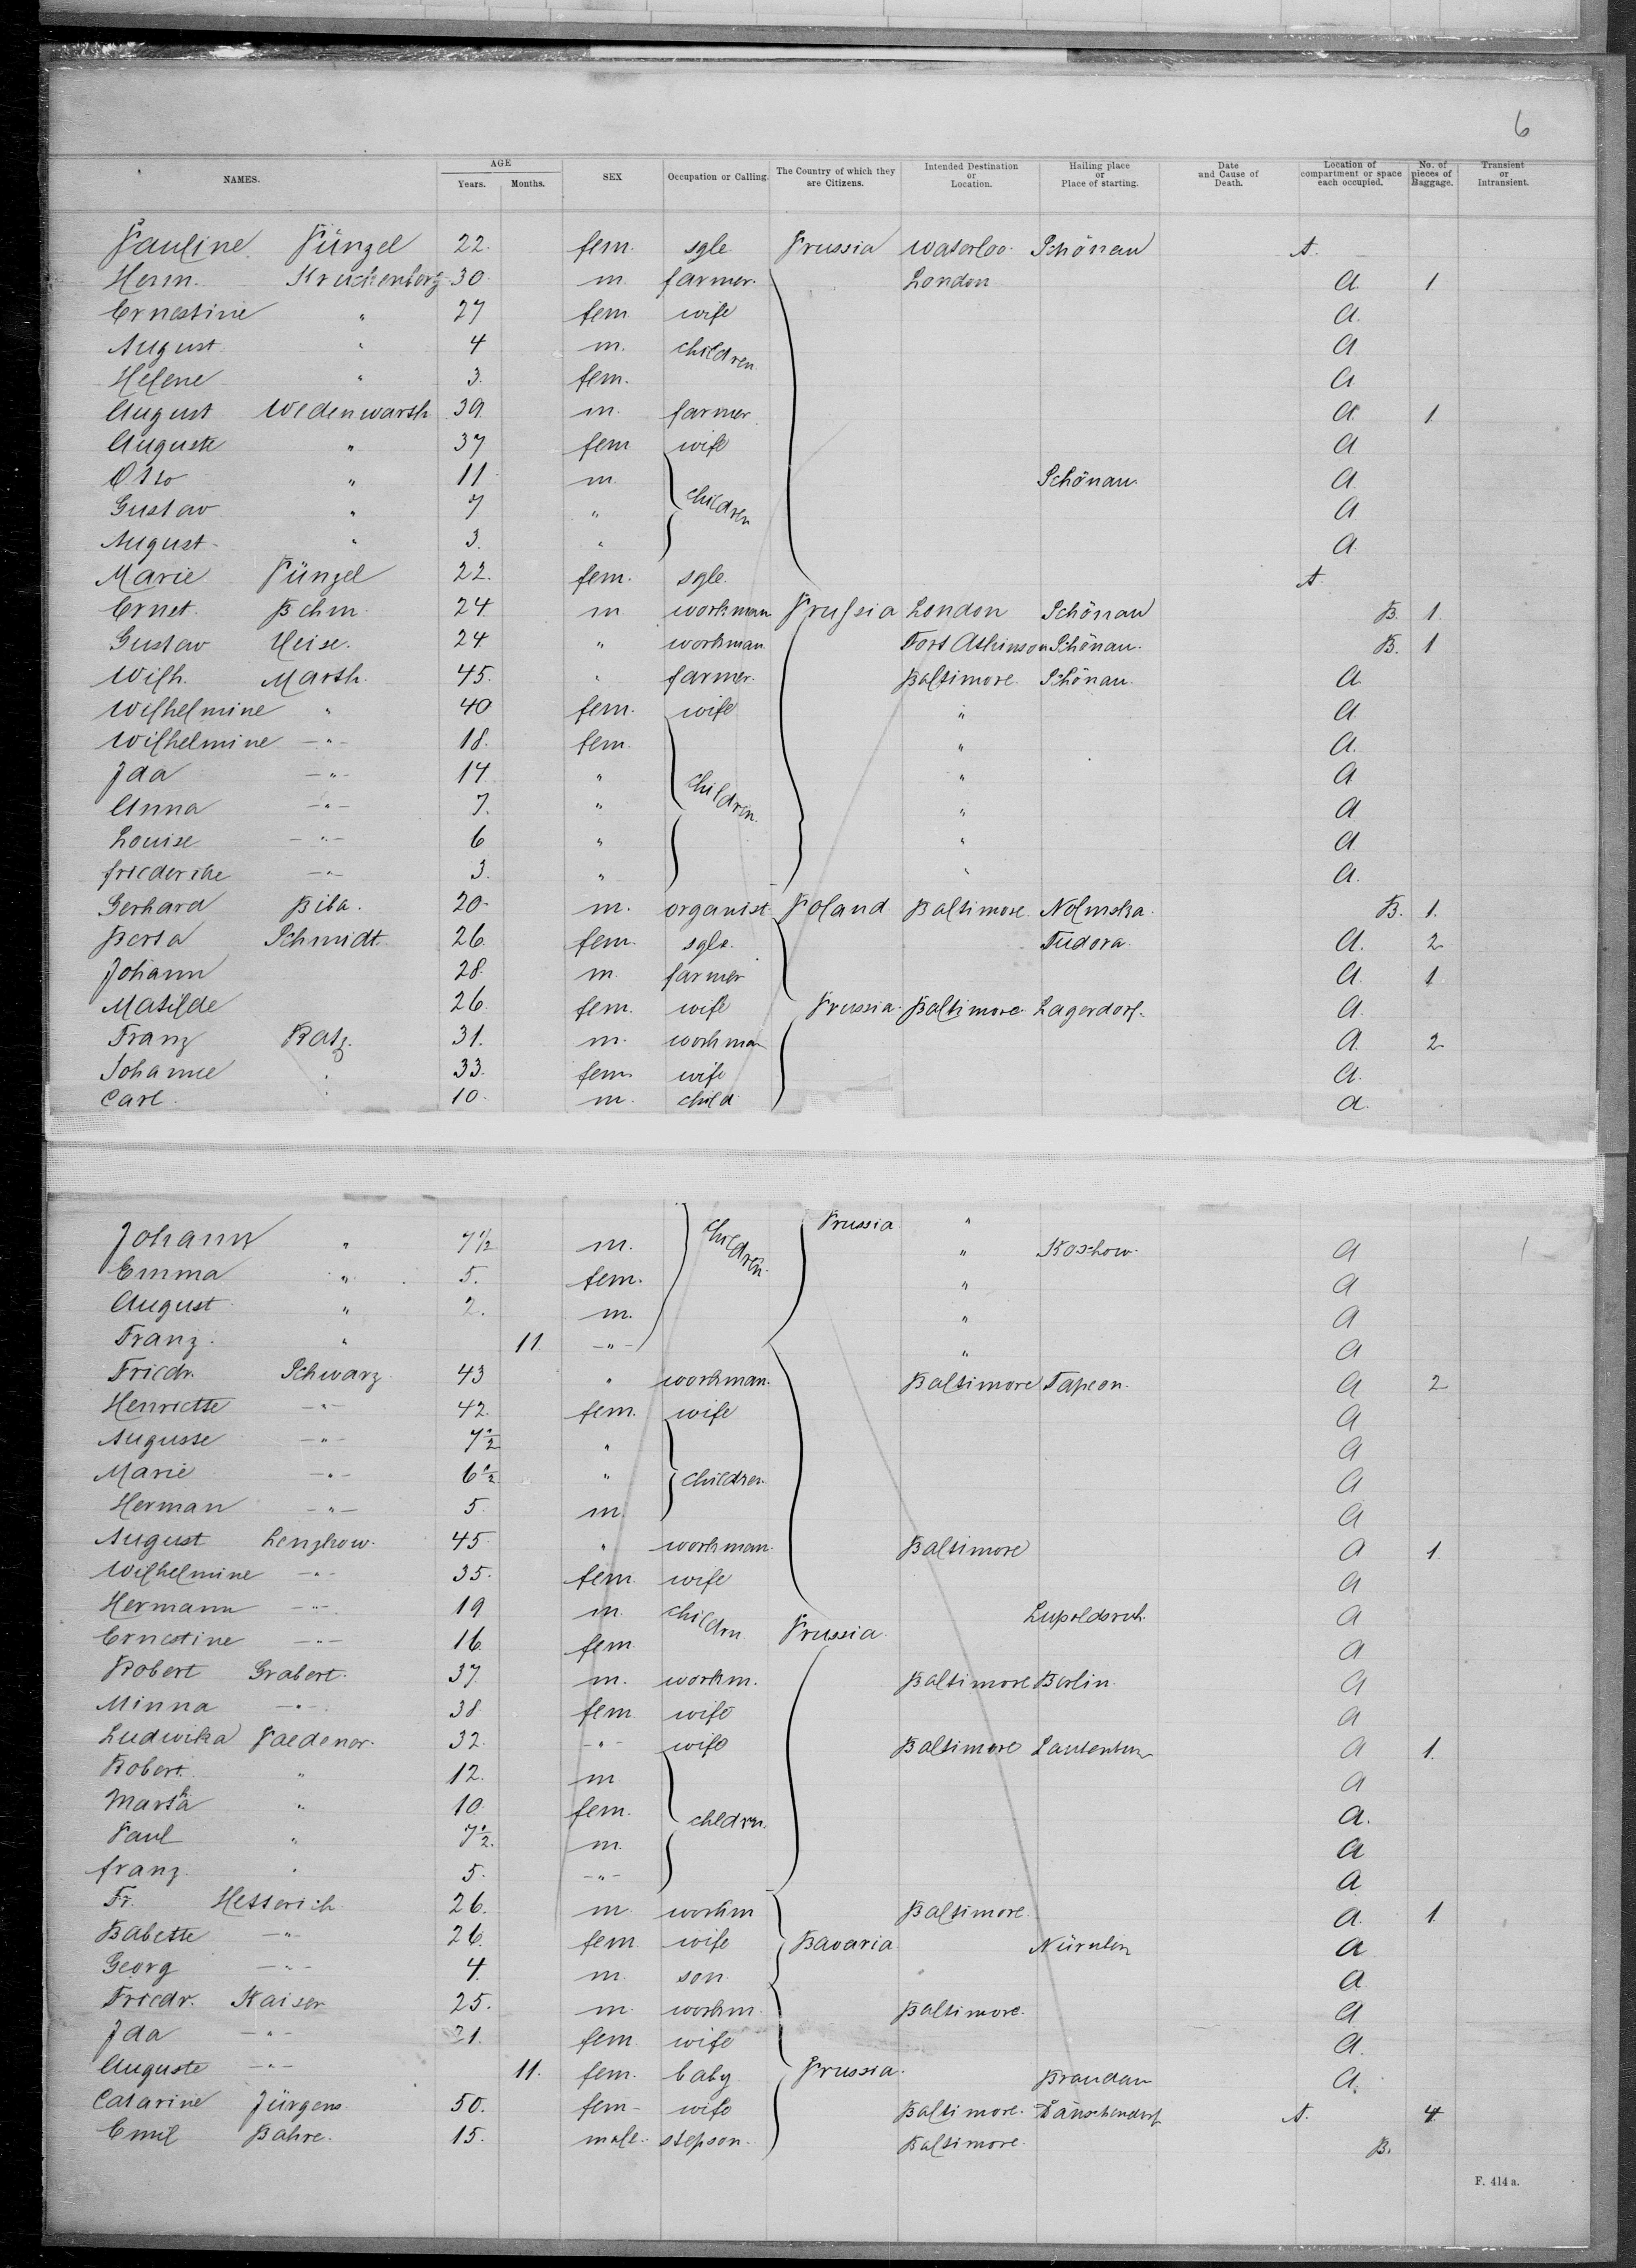 6
NAMES. AGE Years. Months. SEX Occupation or Calling. The Country of which they are Citizens. Intended Destination or Location. Hailing place or Place of starting. Date and Cause of Death. Location of compartment or space each occupied. No. of pieces of Baggage. Transient or Intransient.
Pauline Pünzel 22. fem. sgle Prussia Waterloo. Schönau A.
Herm. Kruckenberg 30. m. farmer. London a 1
Ernestine " 27 fem wife a.
August " 4 m. children a
Helene " 3. fem. a
August Wedenwarth 39 m. farmer. a 1
Auguste " 37 fem wife a
Otto " 11 m. children Schönau. a
Gustav " 7 " a
August " 3. " a
Marie Pünzel 22. fem. sgle. A.
Ernst. Behm. 24 m workman Prussia London Schönau B. 1.
Gustav Heise. 24 " workman. Fort Atkinson Schönau. B. 1
Wilh. Marth. 45. " farmer. Baltimore. Schönau. a
Wilhelmine " 40 fem. wife " a
Wilhelmine -"- 18. fem. children. " a.
Ida -"- 14 " " a
Anna -"- 7. " " a
Louise -"- 6 " " a
friederike -"- 3. " " a.
Gerhard Biba. 20. m. organist Poland Baltimore B. 1.
Berta Schmidt. 26. fem. sgle. Tudora. a. 2
Johann 28. m. farmer a. 1.
Matilde 26 fem. wife Prussia. Baltimore Lagerdorf. a.
Franz Ratz. 31. m. workman a. 2
Johanne " 33. fem. wife a.
Carl. " 10. m. child a.
Johann " 7 1/2 m. children. Prussia " Koschow. a
Emma " 5. fem. " a
August " 2. m. " a
Franz. " 11 -"- " a
Friedr. Schwarz 43 " workman. Baltimore a 2
Henriette -"- 42. fem. wife a
Auguste -"- 7 1/2 " children. a
Marie -"- 6 1/2 " a
Herman -"- 5. m. a
August Lenzkow. 45. " workman. Baltimore a 1.
Wilhelmine -"- 35. fem. wife a
Hermann -"- 19 m. childrn Lupoldsruh. a
Ernestine -"- 16. fem. Prussia. a
Robert Grabert. 37. m. workm. Baltimore Berlin. a
Minna -"- 38 fem. wife a
Ludwika Paedener. 32. -"- wife Baltimore a 1.
Robert. " 12. m childrn. a
Martha " 10 fem. a.
Paul " 7 1/2. m. a
franz. " 5. -"- a
Fr. Hetterich 26. m. workm Baltimore. a. 1
Babette -"- 26. fem. wife Bavaria a
Georg -"- 4. m. son. a
Friedr. Kaiser 25. m. workm. Baltimore. a
Ida -"- 21. fem. wife a.
Auguste -"- 11. fem. baby Prussia. a.
Catarine Jürgens 50. fem- wife Baltimore. A. 4
Emil Bahre. 15. male. stepson. Baltimore. B.
F. 414 a.